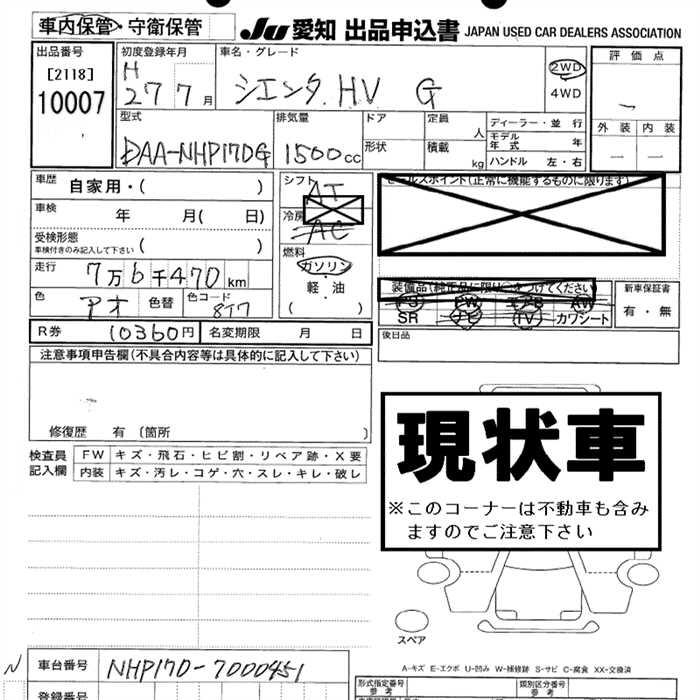 車内保管・守衛保管
JU 愛知 出品申込書 JAPAN USED CAR DEALERS ASSOCIATION
出品番号
[2118]
10007
初度登録年月
H
27 7 月
車名・グレード
シエンタ HV G
2WD
4WD
評価点
外装 内装
型式
DAA-NHP170G
排気量
1500cc
ドア
形状
定員
人
積載
kg
ディーラー・並行
モデル年式 年
ハンドル 左・右
車歴 自家用・( )
車検 年 月( 日)
受検形態
車検付きのみ記入して下さい ( )
走行 7万6千470km
色 アオ 色替 色コード 8T7
シフト
AT
冷房
AC
燃料
ガソリン
軽・油
( )
セールスポイント(正常に機能するものに限ります)
装備品(純正品に限り○をつけてください)
PS PW エアB AW
SR ナビ TV カワシート
新車保証書
有・無
R券 10360円 名変期限 月 日
後日品
注意事項申告欄(不具合内容等は具体的に記入して下さい)
修復歴 有 〔箇所 〕
現状車
※このコーナーは不動車も含み
ますのでご注意下さい
検査員
記入欄
FW キズ・飛石・ヒビ割・リペア跡・X要
内装 キズ・汚レ・コゲ・穴・スレ・キレ・破レ
スペア
A-キズ E-エクボ U-凹み W-補修跡 S-サビ C-腐食 XX-交換済
N
車台番号 NHP170-7000451
登録番号
形式指定番号
参考
類別区分番号
参考